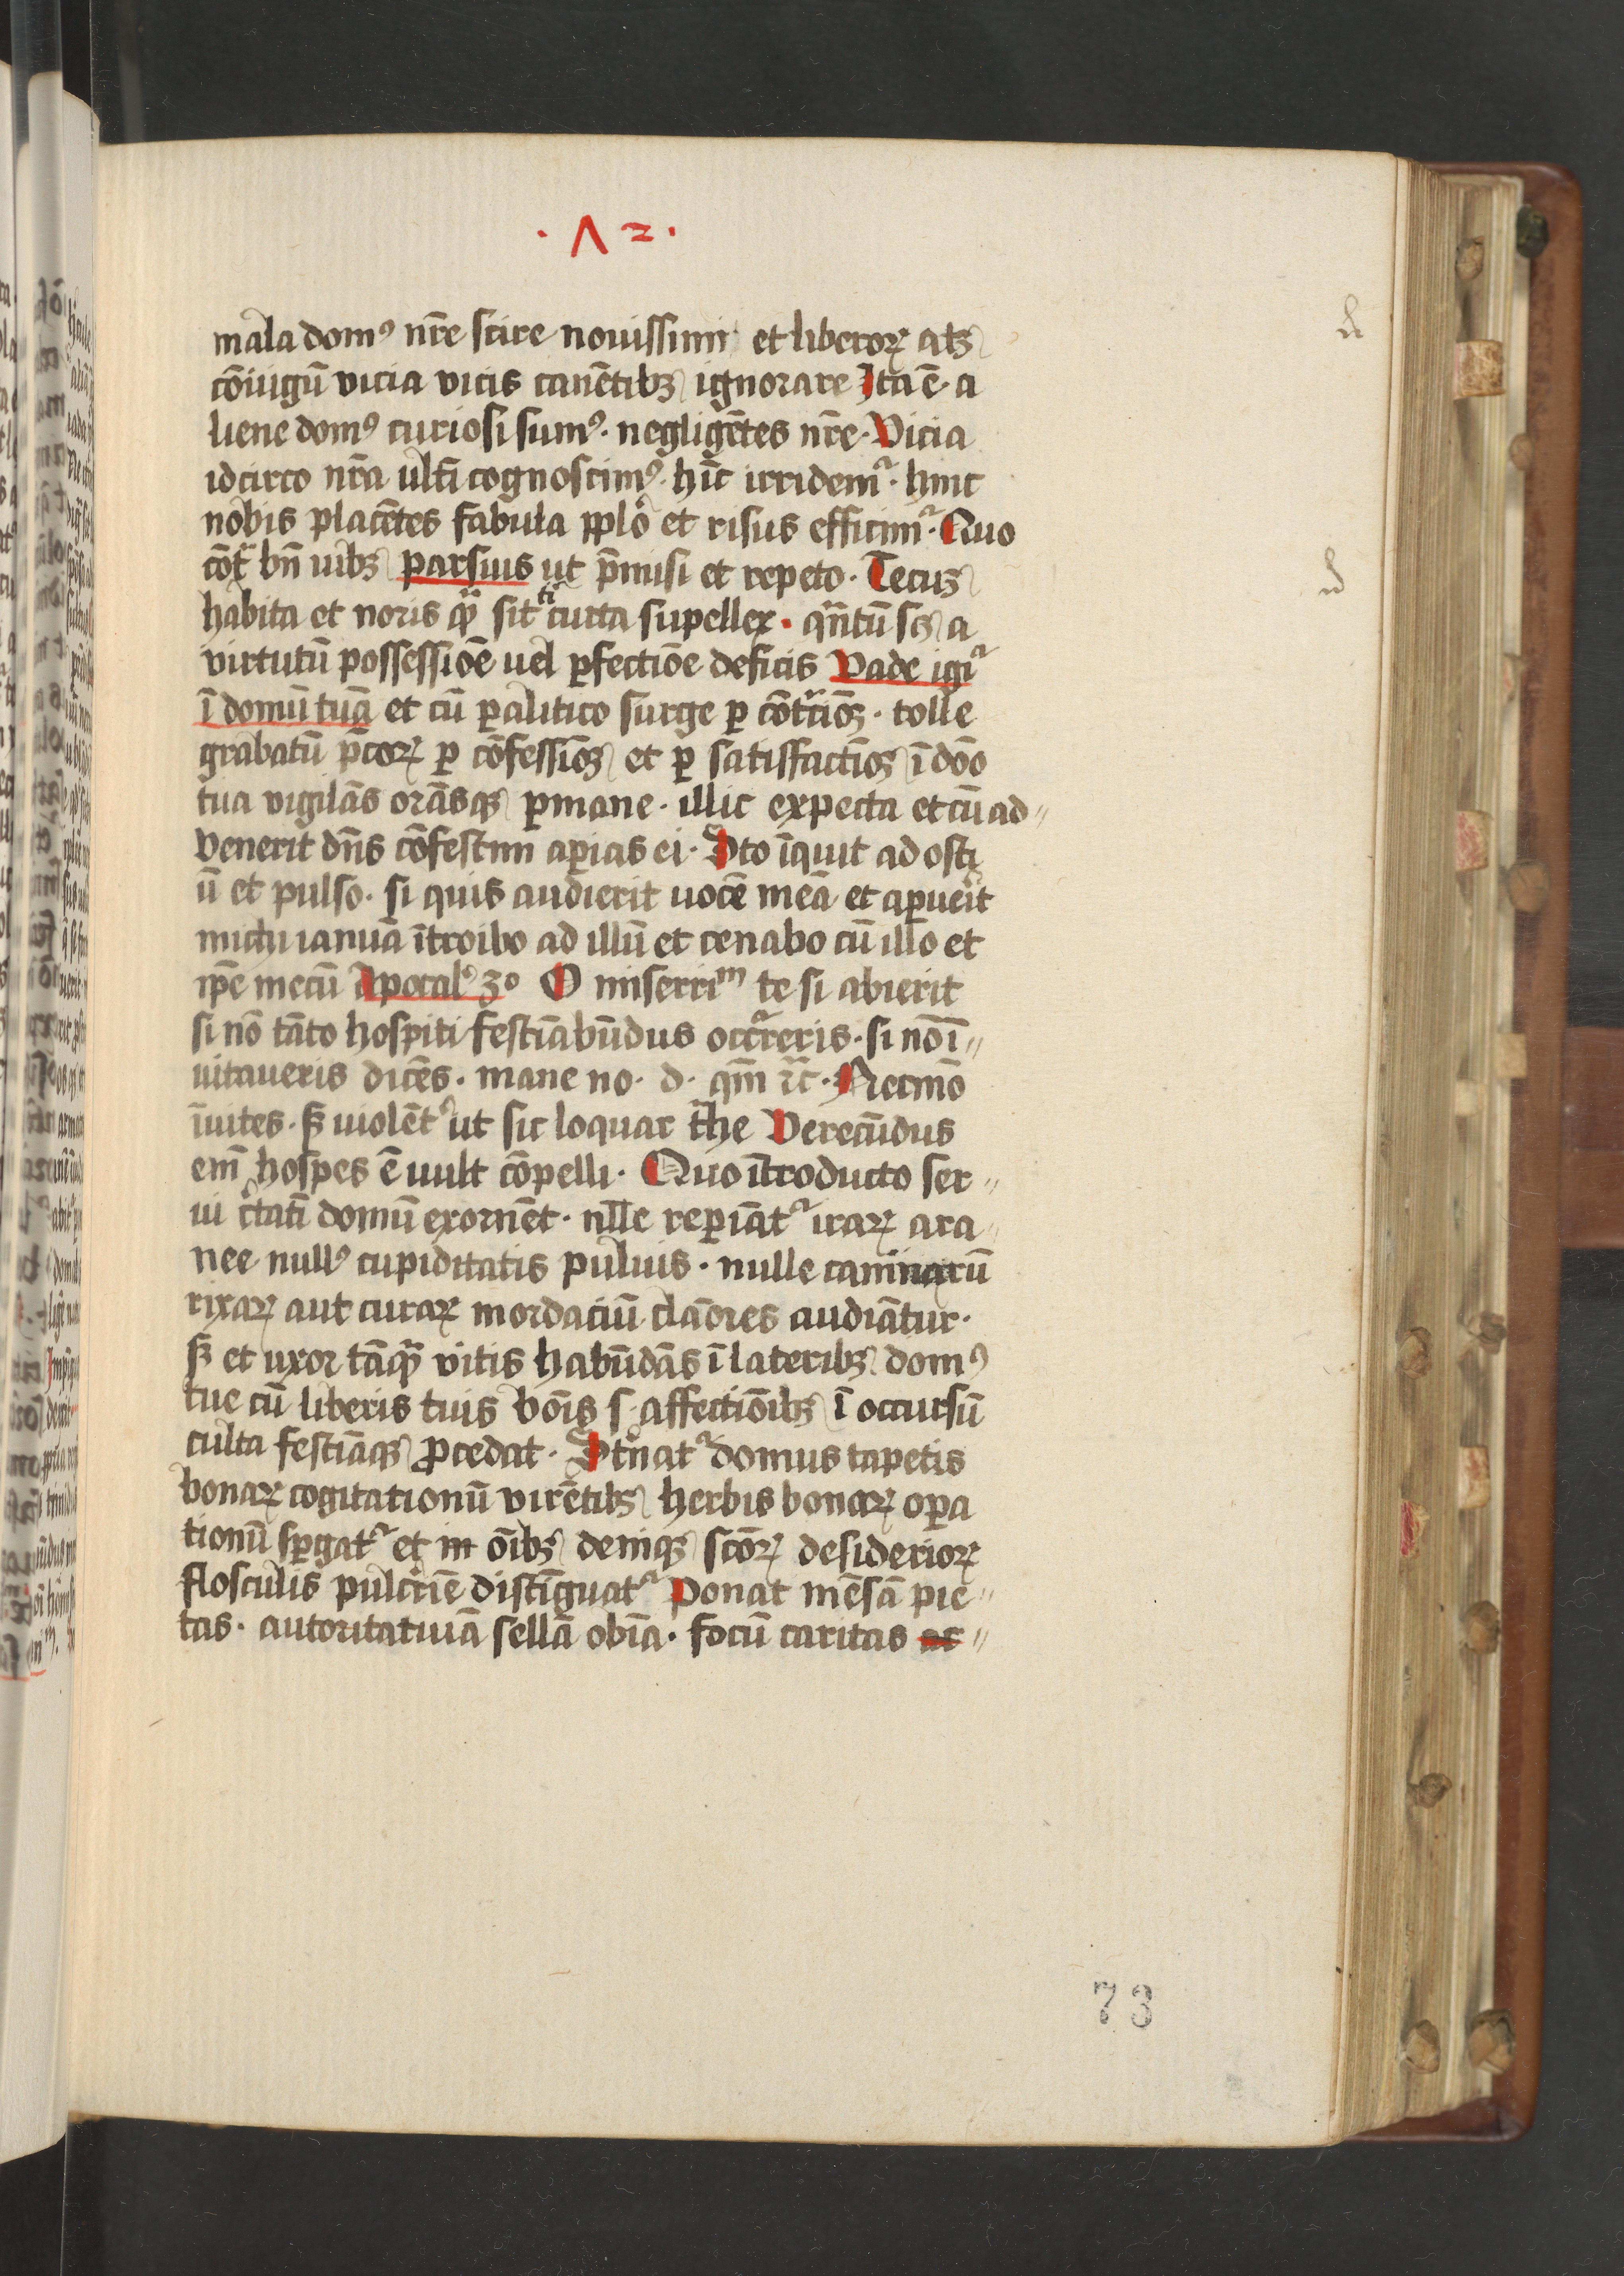 · Λ 2 ·
mala domꝰ nr̄e scire nouissimi et liberoꝝ atqꝫ
cōiugū vicia vicis canētibꝫ ignorare Ita ē · a
liene domꝰ curiosi sumꝰ · negliḡetes nr̄e · Vicia
idcirco nr̄a ultī cognoscimꝰ · hīc irridemᷣ · hinc
nobis placētes fabula pplō et risus efficimᷣ · Quo
cōt bn̄ uibꝫ parsius ut p̄misi et repeto · Tecuꝫ
habita et noris qͣꝫ sit ti curta supellex · qͣntū scꝫ a
virtutū possessiōe uel ꝑfectiōe deficis Vade igiᷣ
ī domū tuā et cū ꝑalitico surge ꝑ cōtͥcioꝫ · tolle
grabatū pc̄coꝝ ꝑ cōfessioꝫ et ꝑ satisfactioꝫ ī domo
tua vigilās orāsqꝫ ꝑmane · illic expecta et cū ad〃
venerit dn̄s cōfestim aꝑias ei · Sto īquit ad osti
ū et pulso · si quis audierit uocē meā et aꝑuerit
michi ianuā ītroibo ad illū et cenabo cū illo et
ip̄e mecū Apocalꝰ 3º O miserrīm te si abierit
si nō tāto hospiti festīabūdus occᷣreris · si nō ī〃
uitaueris dicēs · mane no · d · qm̄ ⁊c · Nec mō
īuites · sꝫ uiolētꝰ ut sic loquar tͣhe Verecūdus
em̄ hospes ē uult cōpelli · Quo ītroducto ser〃
ui c̄tatī domū exornēt · nll̄e reꝑiātᷣ iraꝝ ara
nee nullꝰ cupiditatis puluis · nulle caninarū
rixaꝝ aut curaꝝ mordaciū clāores audiātur ·
sꝫ et uxor tāqͣꝫ vitis habūdās ī lateribꝫ domꝰ
tue cū liberis tuis bōis s · affectiōibꝫ ī occursū
culta festīaqꝫ ꝓcedat · Stͤnatᷣ domus tapetis
bonaꝝ cogitationū virētibꝫ herbis bonaꝝ oꝑa
tionū sꝑgatᷣ et in ōibꝫ deniqꝫ scōꝝ desiderioꝝ
flosculis pulcͥrie distīguatᷣ Ponat mēsā pie〃
tas · autoritatiuā sellā obīa · focū caritas ac〃
73